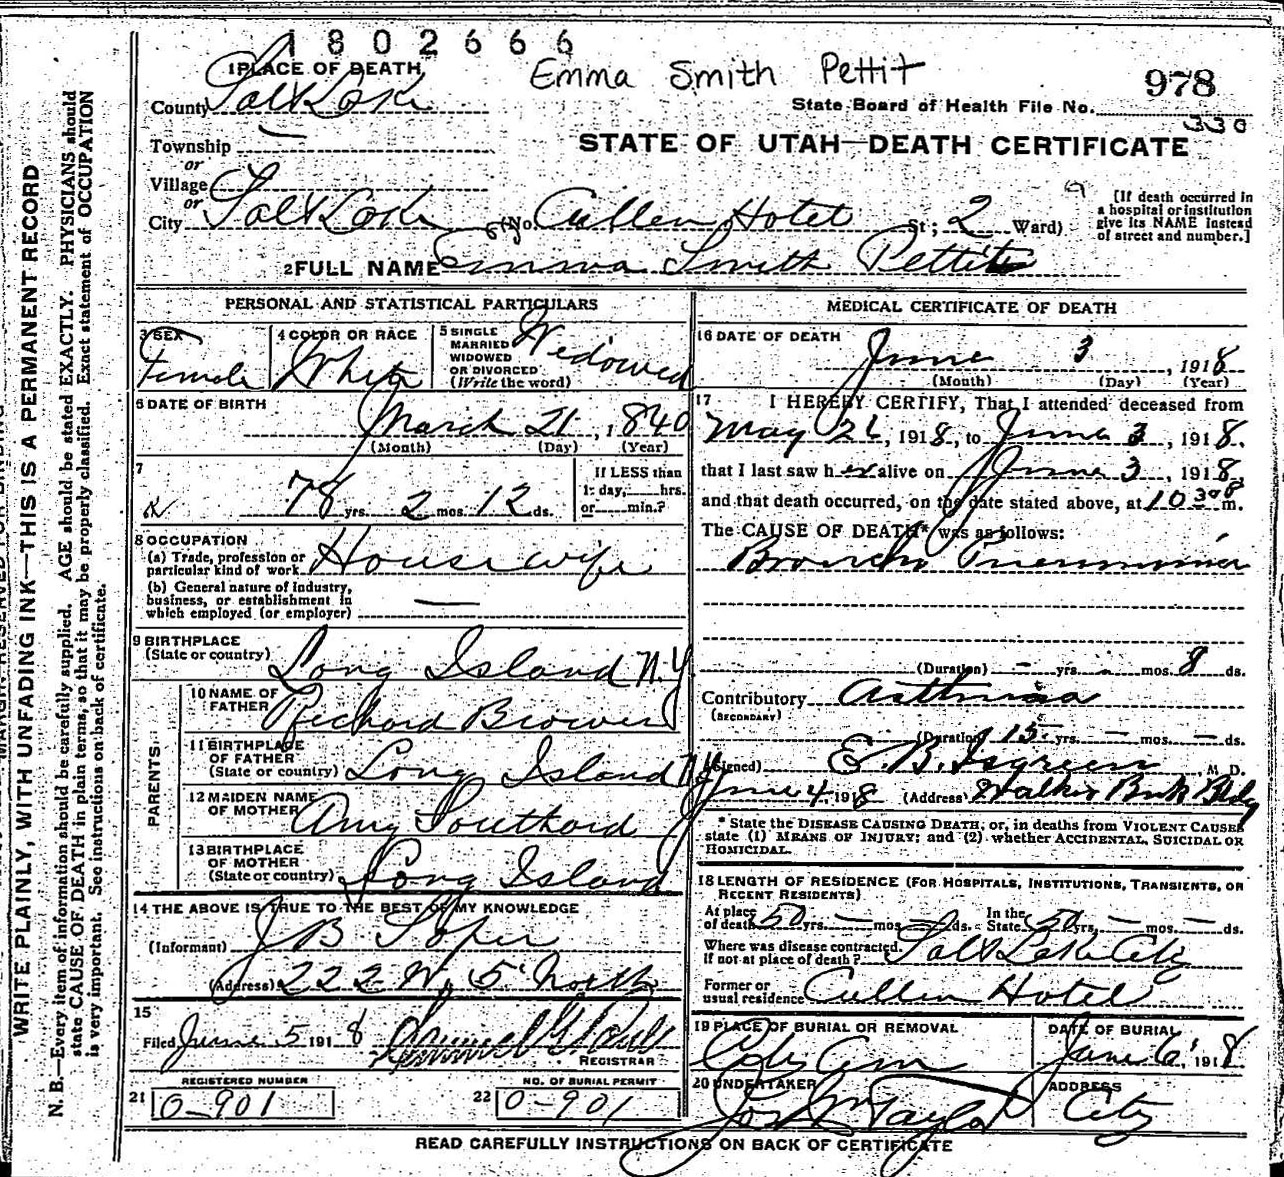 1802666
Emma Smith Pettit
978
1 PLACE OF DEATH
County Salt Lake
State Board of Health File No.
330
Township —
STATE OF UTAH—DEATH CERTIFICATE
or
Village
or
City Salt Lake (No. Cullen Hotel St.; 2 Ward)
[If death occurred in
a hospital or institution
give its NAME instead
of street and number.]
2 FULL NAME Emma Smith Pettit
PERSONAL AND STATISTICAL PARTICULARS
3 SEX
Female
4 COLOR OR RACE
White
5 SINGLE
MARRIED
WIDOWED
OR DIVORCED
(Write the word)
Widowed
6 DATE OF BIRTH
March 21, 1840
(Month) (Day) (Year)
7
78 yrs. 2 mos. 12 ds.
If LESS than
1 day, hrs.
or min.?
8 OCCUPATION
(a) Trade, profession or
particular kind of work Housewife
(b) General nature of industry,
business, or establishment in
which employed (or employer) —
9 BIRTHPLACE
(State or country)
Long Island N.Y
PARENTS
10 NAME OF
FATHER
Richard Brower
11 BIRTHPLACE
OF FATHER
(State or country) Long Island N.Y
12 MAIDEN NAME
OF MOTHER
Amy Southard
13 BIRTHPLACE
OF MOTHER
(State or country) Long Island
14 THE ABOVE IS TRUE TO THE BEST OF MY KNOWLEDGE
(Informant) J B Soper
(Address) 222 W. 5 North
15
Filed June 5 1918
REGISTRAR
REGISTERED NUMBER
21 0-901
NO. OF BURIAL PERMIT
22 0-901
MEDICAL CERTIFICATE OF DEATH
16 DATE OF DEATH
June 3, 1918
(Month) (Day) (Year)
17 I HEREBY CERTIFY, That I attended deceased from
May 26, 1918, to June 3, 1918.
that I last saw her alive on June 3, 1918
and that death occurred, on the date stated above, at 10 30 P m.
The CAUSE OF DEATH* was as follows:
Broncho Pneumonia
(Duration) — yrs. — mos. 8 ds.
Contributory Asthma
(SECONDARY)
(Duration) 15 yrs. — mos. — ds.
(Signed) E. B. Isgreen, M D.
June 4, 1918 (Address) Walker Bnk Bldg
* State the DISEASE CAUSING DEATH, or, in deaths from VIOLENT CAUSES
state (1) MEANS OF INJURY; and (2) whether ACCIDENTAL, SUICIDAL OR
HOMICIDAL.
18 LENGTH OF RESIDENCE (FOR HOSPITALS, INSTITUTIONS, TRANSIENTS, OR
RECENT RESIDENTS)
At place
of death 50 yrs. — mos. — ds.
In the
State 50 yrs. — mos. — ds.
Where was disease contracted,
if not at place of death? Salt Lake City
Former or
usual residence Cullen Hotel
19 PLACE OF BURIAL OR REMOVAL
City Cem
DATE OF BURIAL
June 6, 1918
20 UNDERTAKER
Jos Wm Taylor
ADDRESS
City
READ CAREFULLY INSTRUCTIONS ON BACK OF CERTIFICATE
WRITE PLAINLY, WITH UNFADING INK—THIS IS A PERMANENT RECORD
N. B.—Every item of information should be carefully supplied. AGE should be stated EXACTLY. PHYSICIANS should
state CAUSE OF DEATH in plain terms, so that it may be properly classified. Exact statement of OCCUPATION
is very important. See instructions on back of certificate.